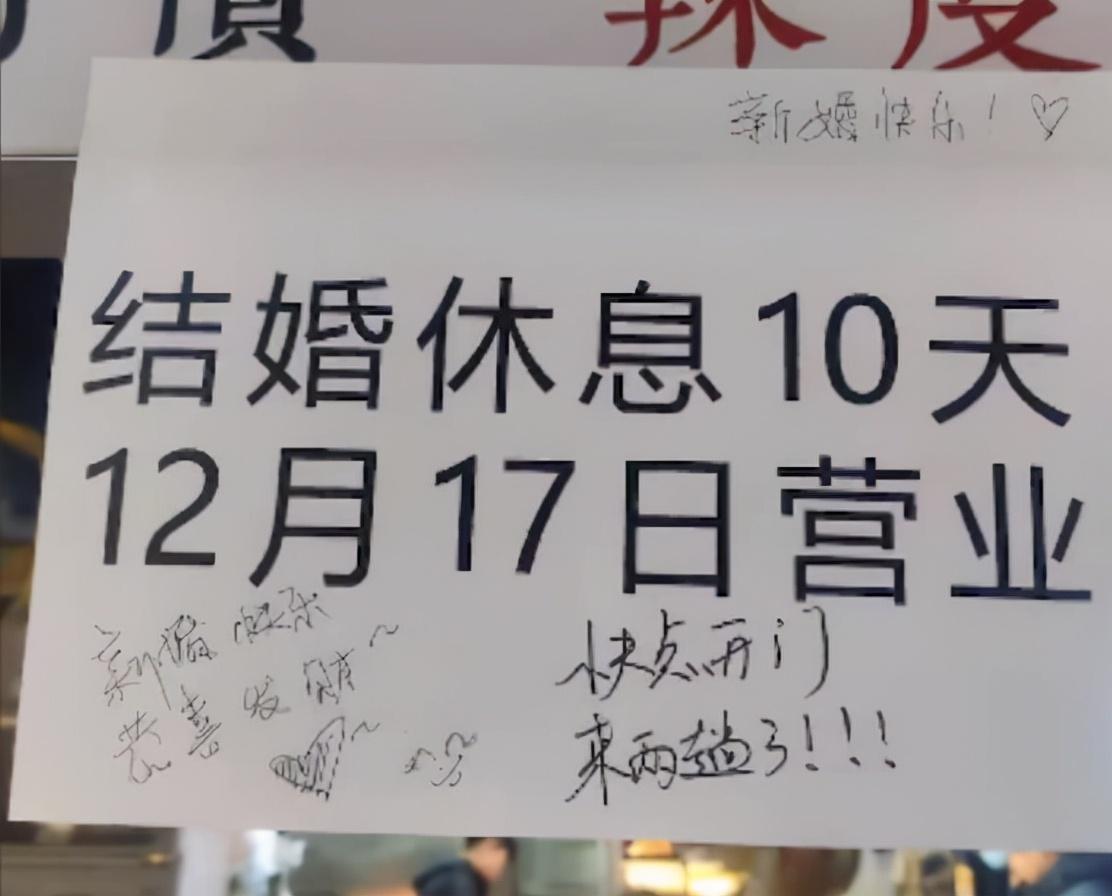 辣度
新婚快乐！♡
结婚休息10天
12月17日营业
新婚快乐~
恭喜发财~
快点开门
来两趟了!!!